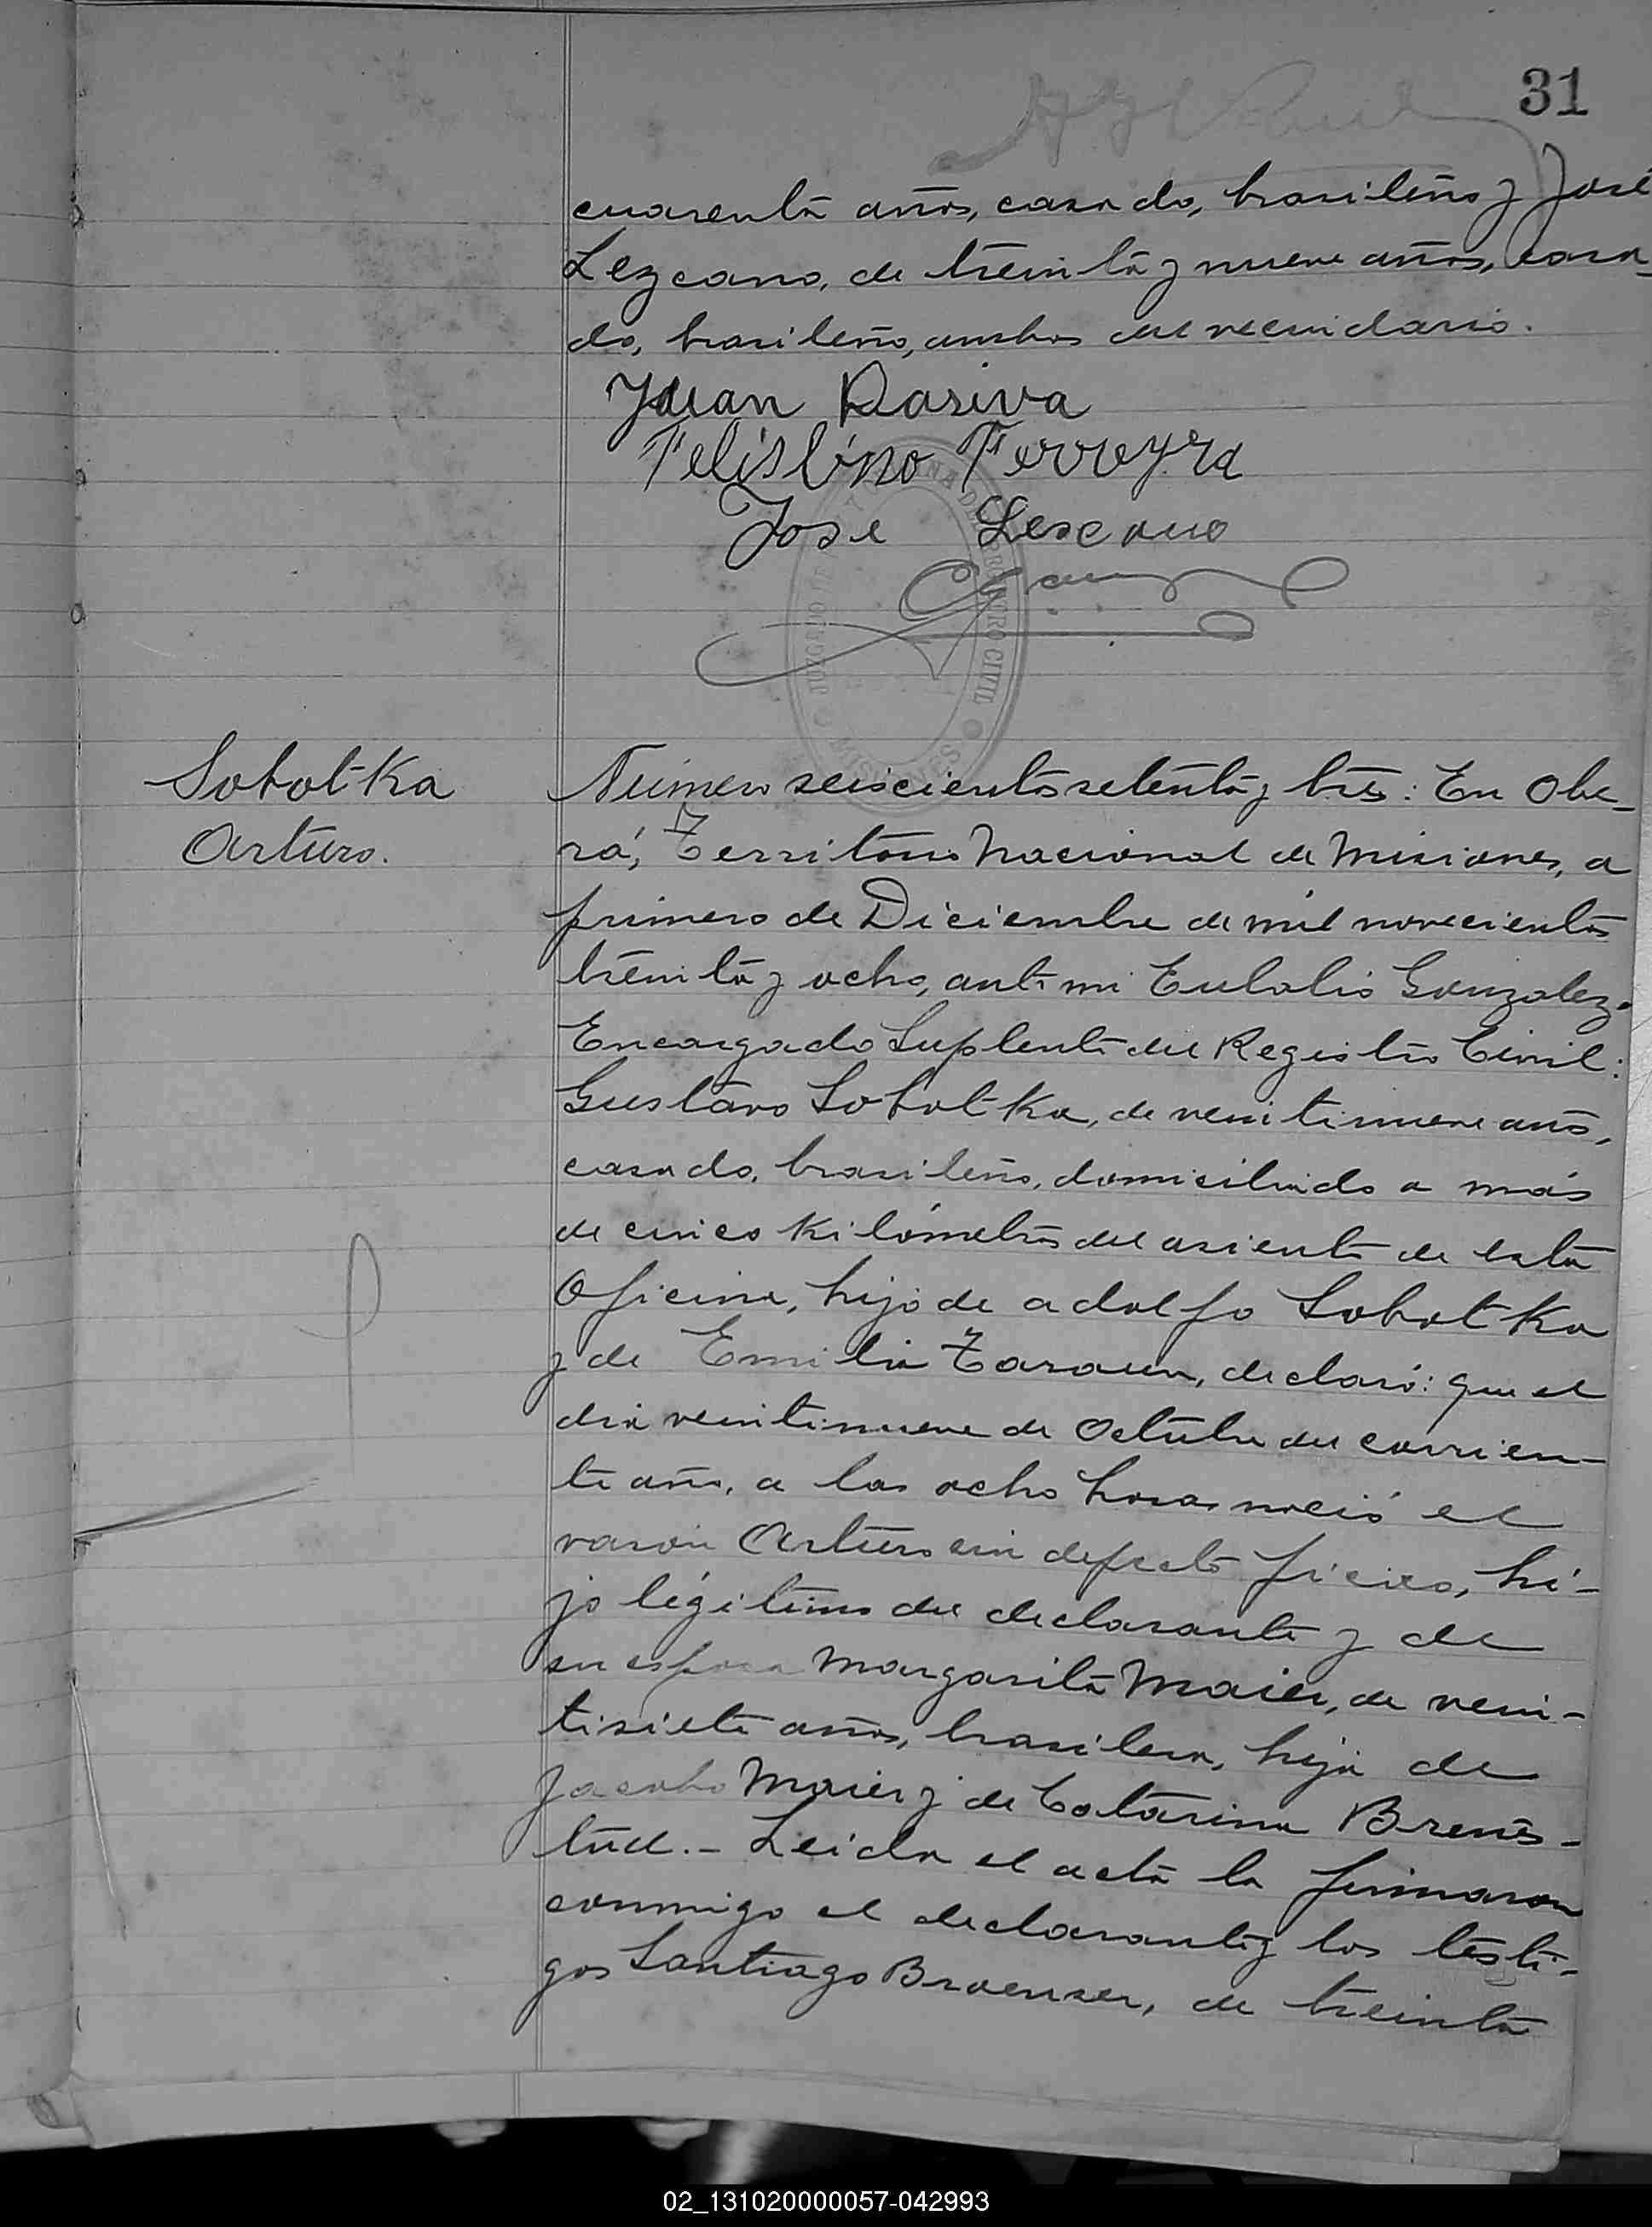 31
cuarenta años, casado, brasileño y José
Lezcano, de treinta y nueve años, casa-
do, brasileño, ambos del vecindario.
Juan Dasiva
Felisbino Ferreyra
Jose Lescano
OFICINA DEL REGISTRO CIVIL
MISIONES
Sobotka
Arturo.
Número seiscientos setenta y tres: En Obe-
rá, Territorio Nacional de Misiones, a
primero de Diciembre de mil novecientos
treinta y ocho, ante mi Eulalio Gonzalez,
Encargado Suplente del Registro Civil:
Gustavo Sobotka, de veintinueve años,
casado, brasileño, domiciliado a más
de cinco kilómetros del asiento de esta
Oficina, hijo de Adolfo Sobotka
y de Emilia, declaró: que el
dia veintinueve de Octubre del corrien-
te año, a las ocho horas nació el
varón Arturo sin defecto físico, hi-
jo legítimo del declarante y de
su esposa Margarita Maier, de vein-
tisiete años, brasilera, hija de
Jacobo Maier y de Catarina Brens-
tull.- Leida el acta la firmaron
conmigo el declarante y los testi-
gos Santiago Braenser, de treinta
02_131020000057-042993